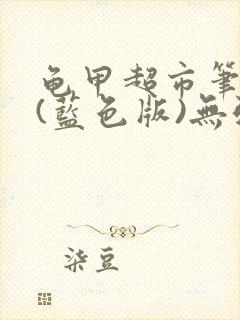 龟甲超市筆
(藍色版)無
柒豆